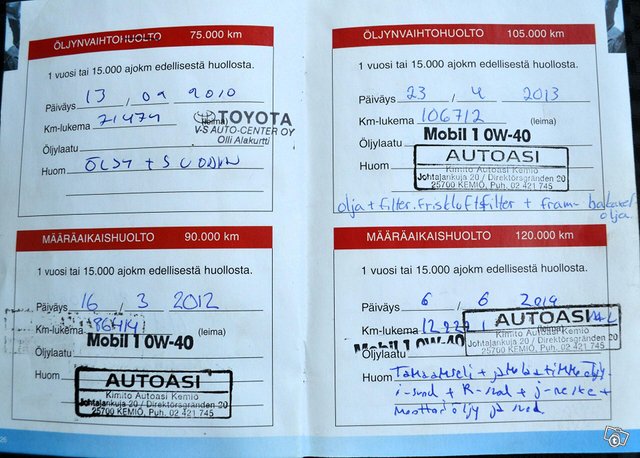 ÖLJYNVAIHTOHUOLTO 75.000 km
1 vuosi tai 15.000 ajokm edellisestä huollosta.
Päiväys 13 / 09 2010
Km-lukema 71474 (leima)
TOYOTA
V-S AUTO-CENTER OY
Olli Alakurtti
Öljylaatu
Huom ÖLJY + SUODIN
MÄÄRÄAIKAISHUOLTO 90.000 km
1 vuosi tai 15.000 ajokm edellisestä huollosta.
Päiväys 16 / 3 2012
Km-lukema 86414 (leima)
Öljylaatu Mobil 1 0W-40
Huom
AUTOASI
Kimito Autoasi Kemiö
Johtalankuja 20 / Direktörsgränden 20
25700 KEMIÖ, Puh. 02 421 745
26
ÖLJYNVAIHTOHUOLTO 105.000 km
1 vuosi tai 15.000 ajokm edellisestä huollosta.
Päiväys 23 / 4 2013
Km-lukema 106712 (leima)
Öljylaatu Mobil 1 0W-40
Huom
AUTOASI
Kimito Autoasi Kemiö
Johtalankuja 20 / Direktörsgränden 20
25700 KEMIÖ, Puh. 02 421 745
olja + filter. friskluftsfilter + fram- bakaxel
olja
MÄÄRÄAIKAISHUOLTO 120.000 km
1 vuosi tai 15.000 ajokm edellisestä huollosta.
Päiväys 6 / 6 2014
Km-lukema (leima)
AUTOASI
Kimito Autoasi Kemiö
Johtalankuja 20 / Direktörsgränden 20
25700 KEMIÖ, Puh. 02 421 745
Öljylaatu Mobil 1 0W-40
Huom Takaakseli +
i-suod + R-suod + j-neste +
moottoriöljy ja suod